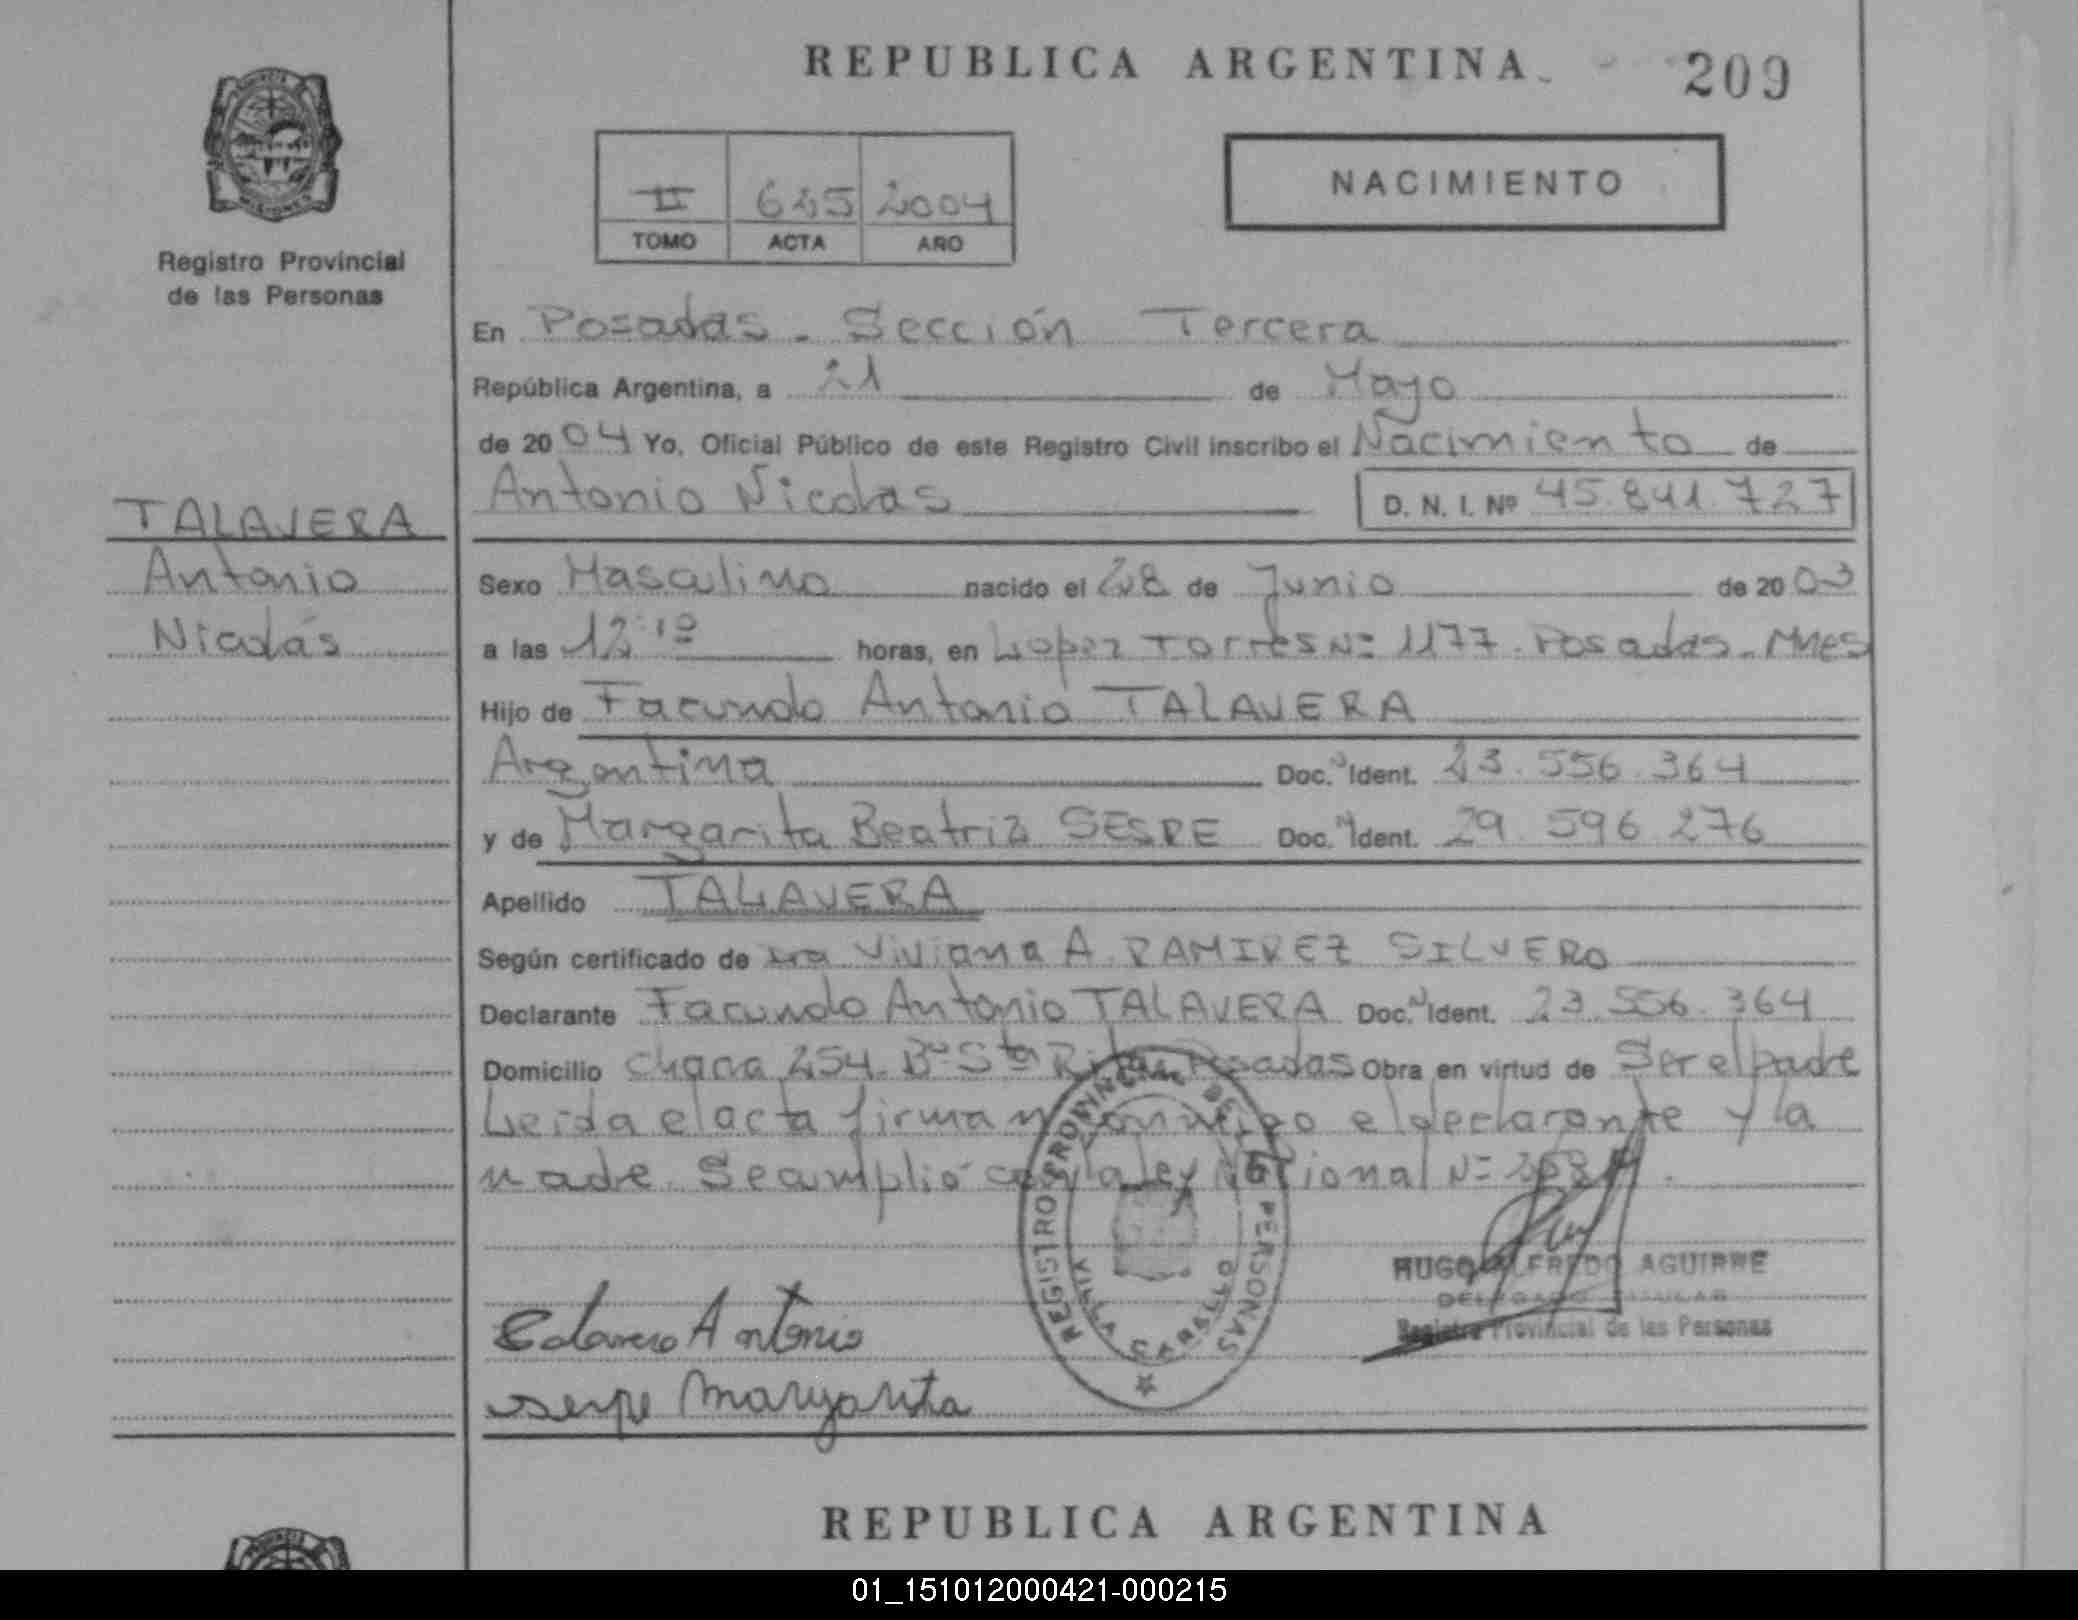 REPUBLICA ARGENTINA
209
Registro Provincial
de las Personas
NACIMIENTO
II 625 2004
TOMO ACTA AÑO
En Posadas - Sección Tercera
República Argentina, a 21 de Mayo
de 2004 Yo, Oficial Público de este Registro Civil inscribo el Nacimiento de
Antonio Nicolas D. N. I. Nº 45.841.727
TALAVERA
Antonio
Nicolás
Sexo Masculino nacido el 28 de Junio de 2003
a las 12:10 horas, en Lopez Torres Nº 1177. Posadas - Mnes
Hijo de Facundo Antonio TALAVERA
Argentina Doc. Ident. 23.556.364
y de Margarita Beatriz SESPE Doc. Ident. 29.596.276
Apellido TALAVERA
Según certificado de Viviana A. RAMIREZ SILVERO
Declarante Facundo Antonio TALAVERA Doc. Ident. 23.556.364
Domicilio Chacra 254 - Bº Sta Rita Posadas Obra en virtud de Ser el padre
Leida el acta firman conmigo el declarante y la
madre. Se amplió con la ley Nacional Nº
REGISTRO PROVINCIAL DE LAS PERSONAS
VILLA CABELLO
HUGO ALFREDO AGUIRRE
DELEGADO TITULAR
Registro Provincial de las Personas
Talavera Antonio
sespe Margarita
REPUBLICA ARGENTINA
01_151012000421-000215